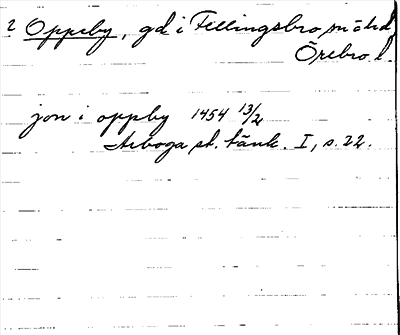 2 Oppeby, gd i Fellingsbro sn o hd
Örebro l.
jon i oppby 1454 13/2
Arboga st. tänk. I, s. 22.